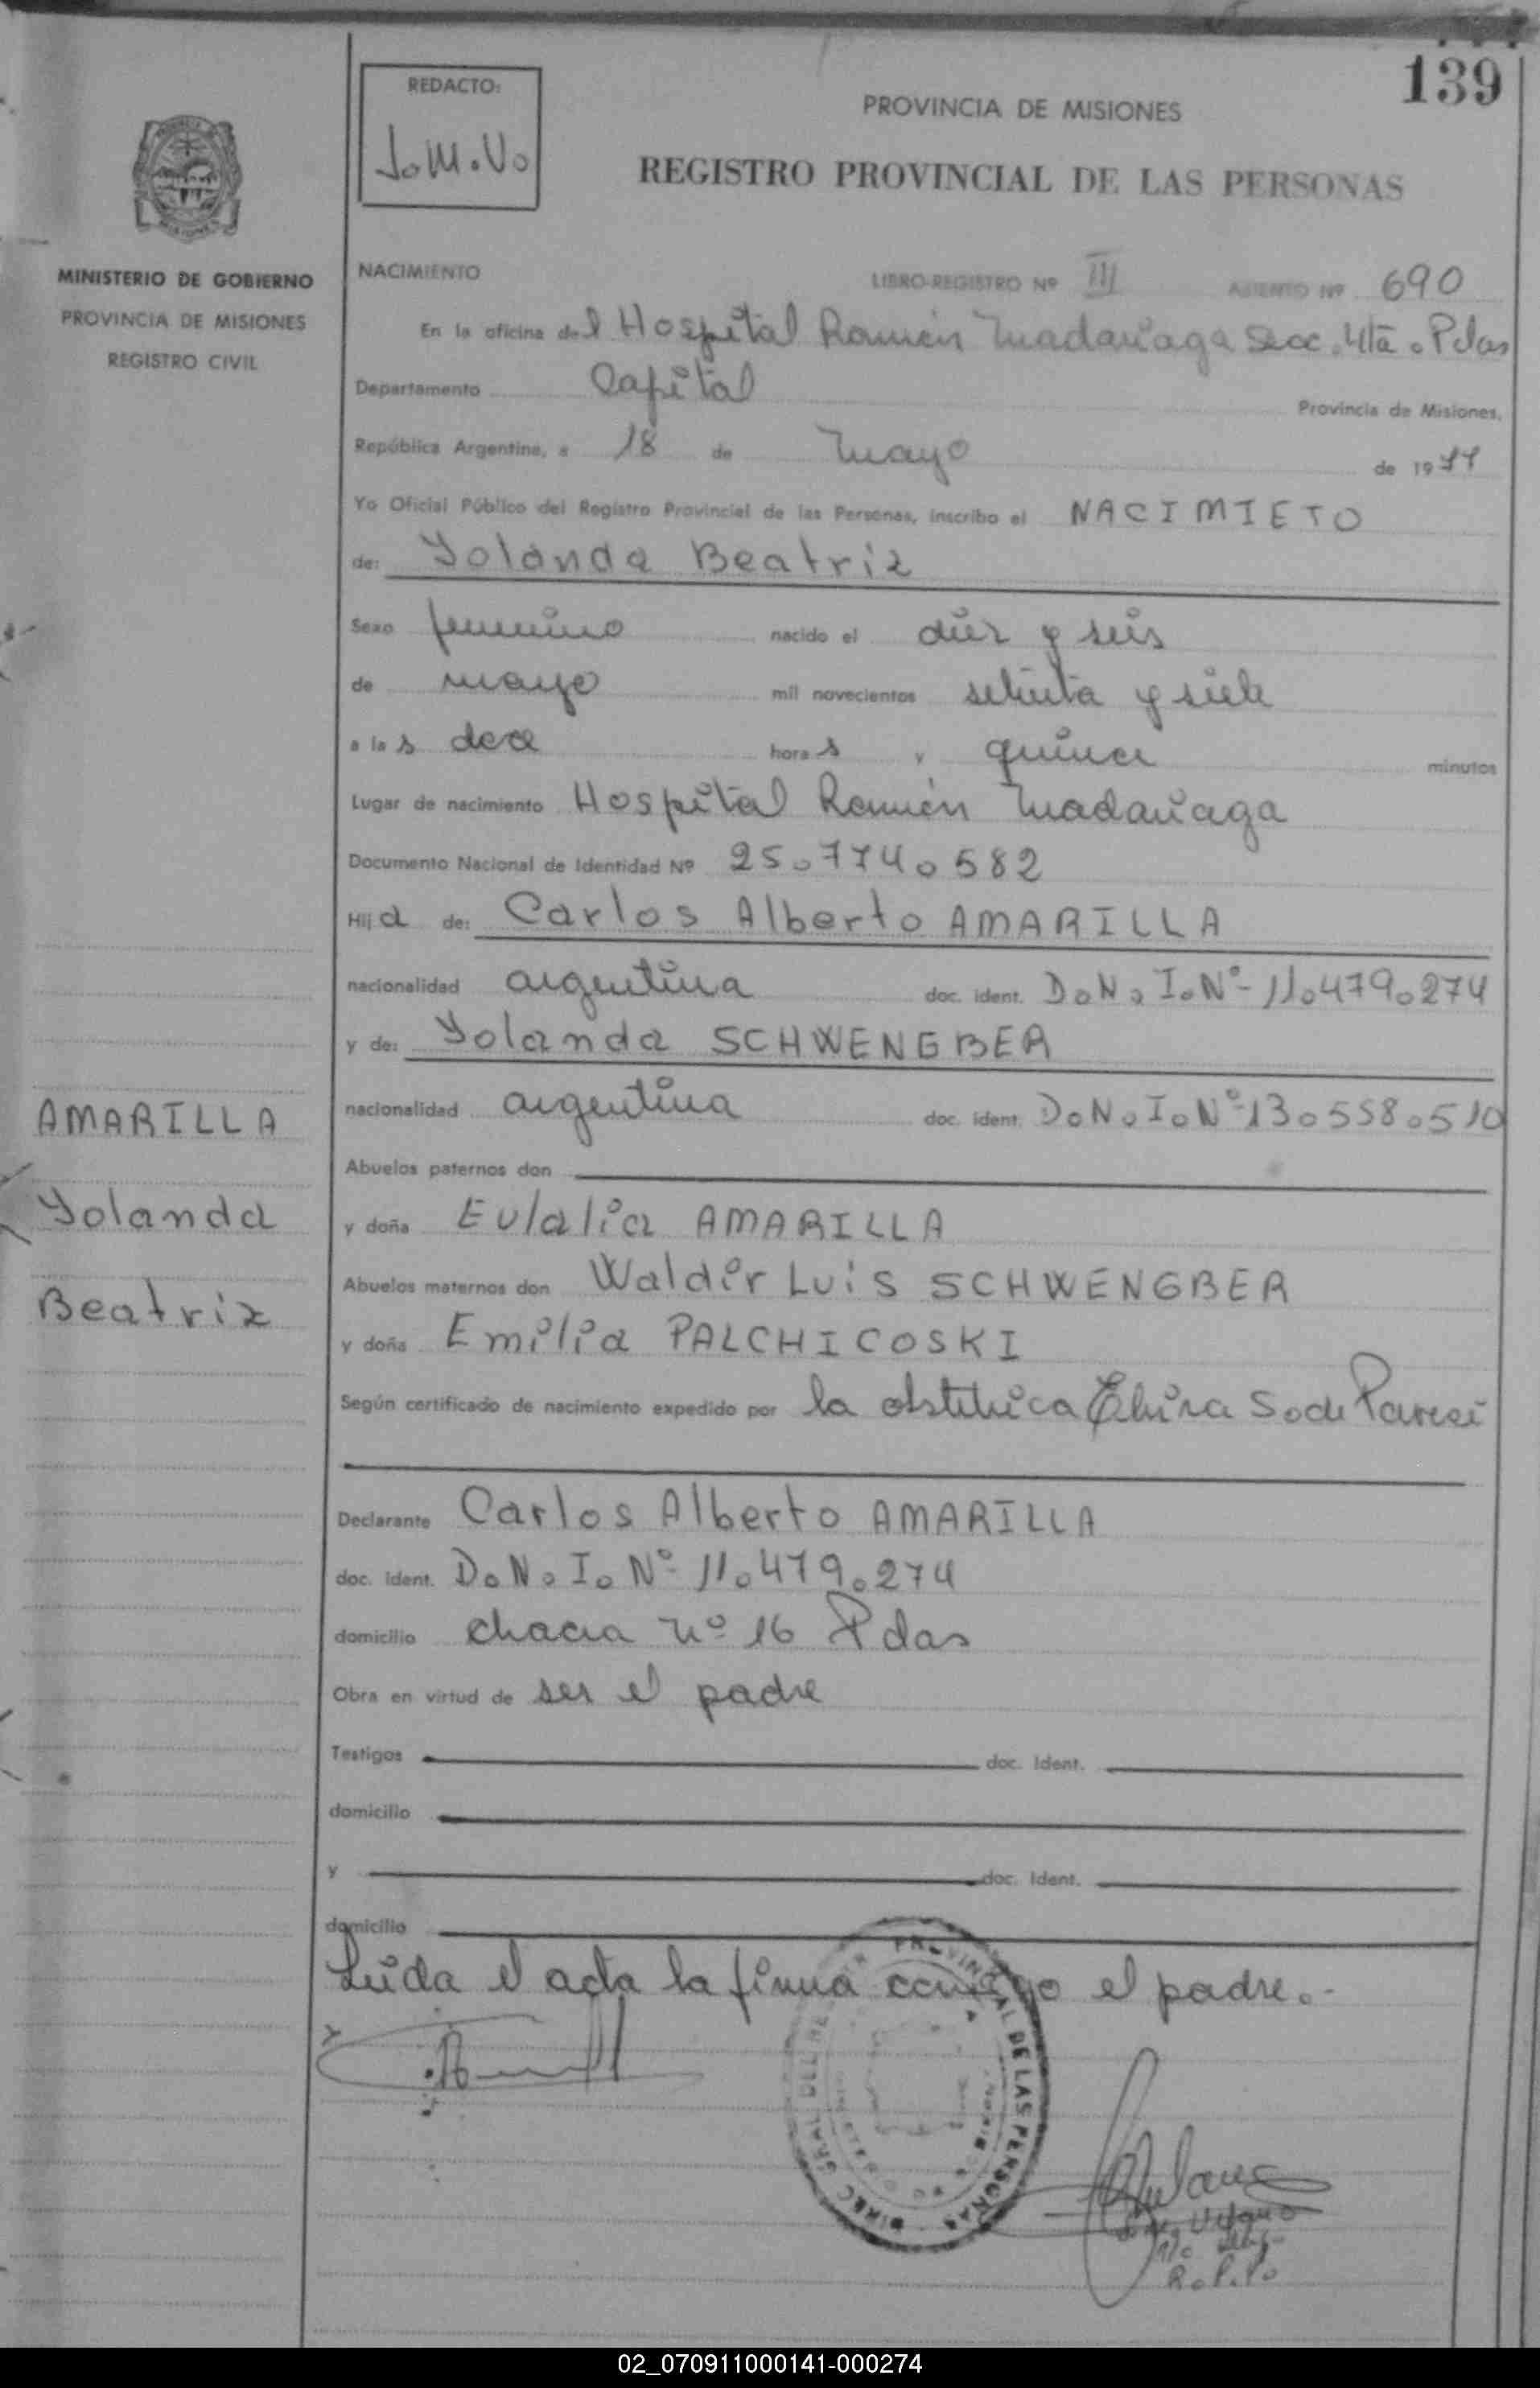 139
REDACTO:
J.M.V.
PROVINCIA DE MISIONES
REGISTRO PROVINCIAL DE LAS PERSONAS
MINISTERIO DE GOBIERNO
PROVINCIA DE MISIONES
REGISTRO CIVIL
NACIMIENTO LIBRO-REGISTRO Nº III ASIENTO Nº 690
En la oficina del Hospital Ramón Madariaga Secc. 4ta. Pdas
Departamento Capital Provincia de Misiones,
República Argentina, a 18 de Mayo de 1977
Yo Oficial Público del Registro Provincial de las Personas, inscribo el NACIMIETO
de: Yolanda Beatriz
Sexo femenino nacido el diez y seis
de mayo mil novecientos setenta y siete
a las doce horas y quince minutos
Lugar de nacimiento Hospital Ramón Madariaga
Documento Nacional de Identidad Nº 25.774.582
Hija de: Carlos Alberto AMARILLA
nacionalidad argentina doc. ident. D.N.I.Nº 11.479.274
y de: Yolanda SCHWENGBER
nacionalidad argentina doc. ident. D.N.I.Nº 13.558.510
Abuelos paternos don
y doña Eulalia AMARILLA
Abuelos maternos don Waldir Luis SCHWENGBER
y doña Emilia PALCHICOSKI
Según certificado de nacimiento expedido por la obstétrica Elvira S. de
AMARILLA
Yolanda
Beatriz
Declarante Carlos Alberto AMARILLA
doc. ident. D.N.I.Nº 11.479.274
domicilio chacra nº 16 Pdas
Obra en virtud de ser el padre
Testigos doc. ident.
domicilio
y doc. ident.
domicilio
Leída el acta la firma conmigo el padre.-
PROVINCIAL DE LAS PERSONAS
02_070911000141-000274